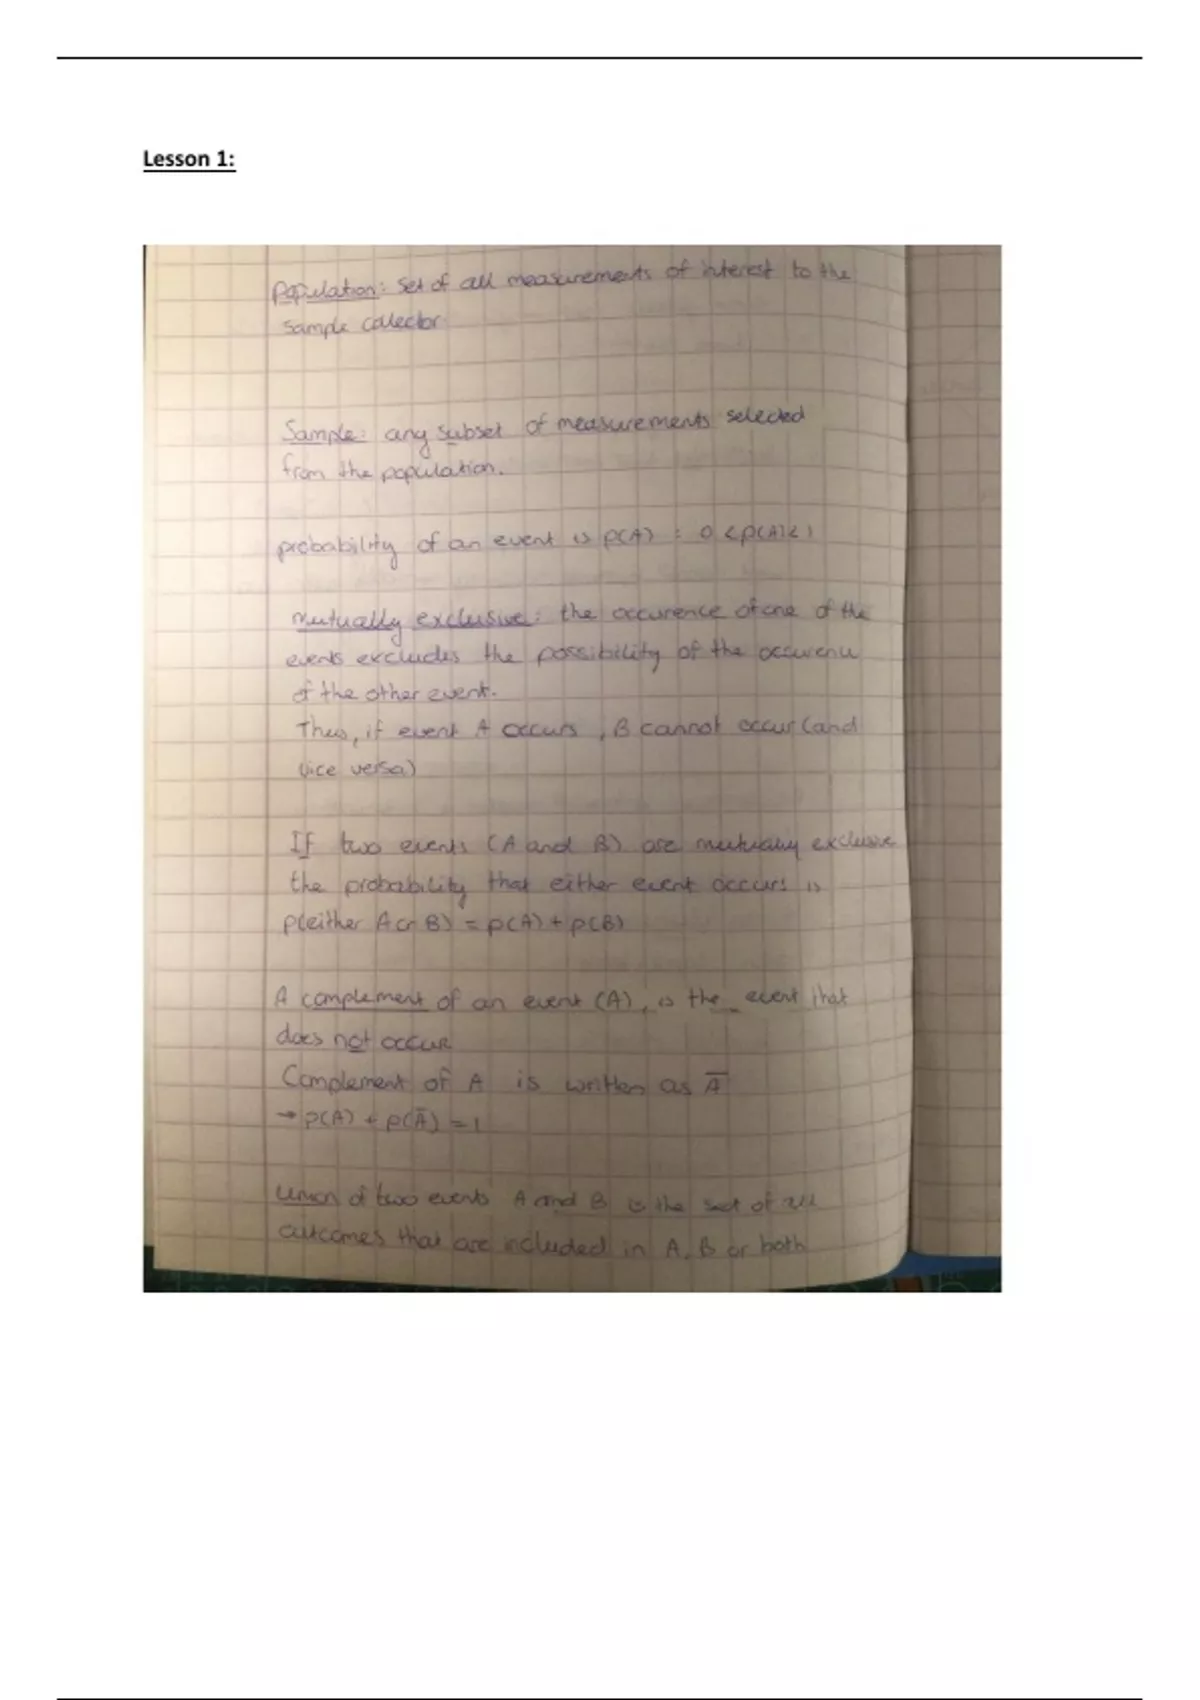 Lesson 1:
Population: Set of all measurements of interest to the
sample collector
Sample: any subset of measurements selected
from the population.
probability of an event is p(A) : 0 < p(A) < 1
mutually exclusive: the occurence of one of the
events excludes the possibility of the occurence
of the other event.
Thus, if event A occurs, B cannot occur (and
vice versa)
If two events (A and B) are mutually exclusive
the probability that either event occurs is
p(either A or B) = p(A) + p(B)
A complement of an event (A), is the event that
does not occur
Complement of A is written as A̅
→ p(A) + p(A̅) = 1
Union of two events A and B is the set of all
outcomes that are included in A, B or both